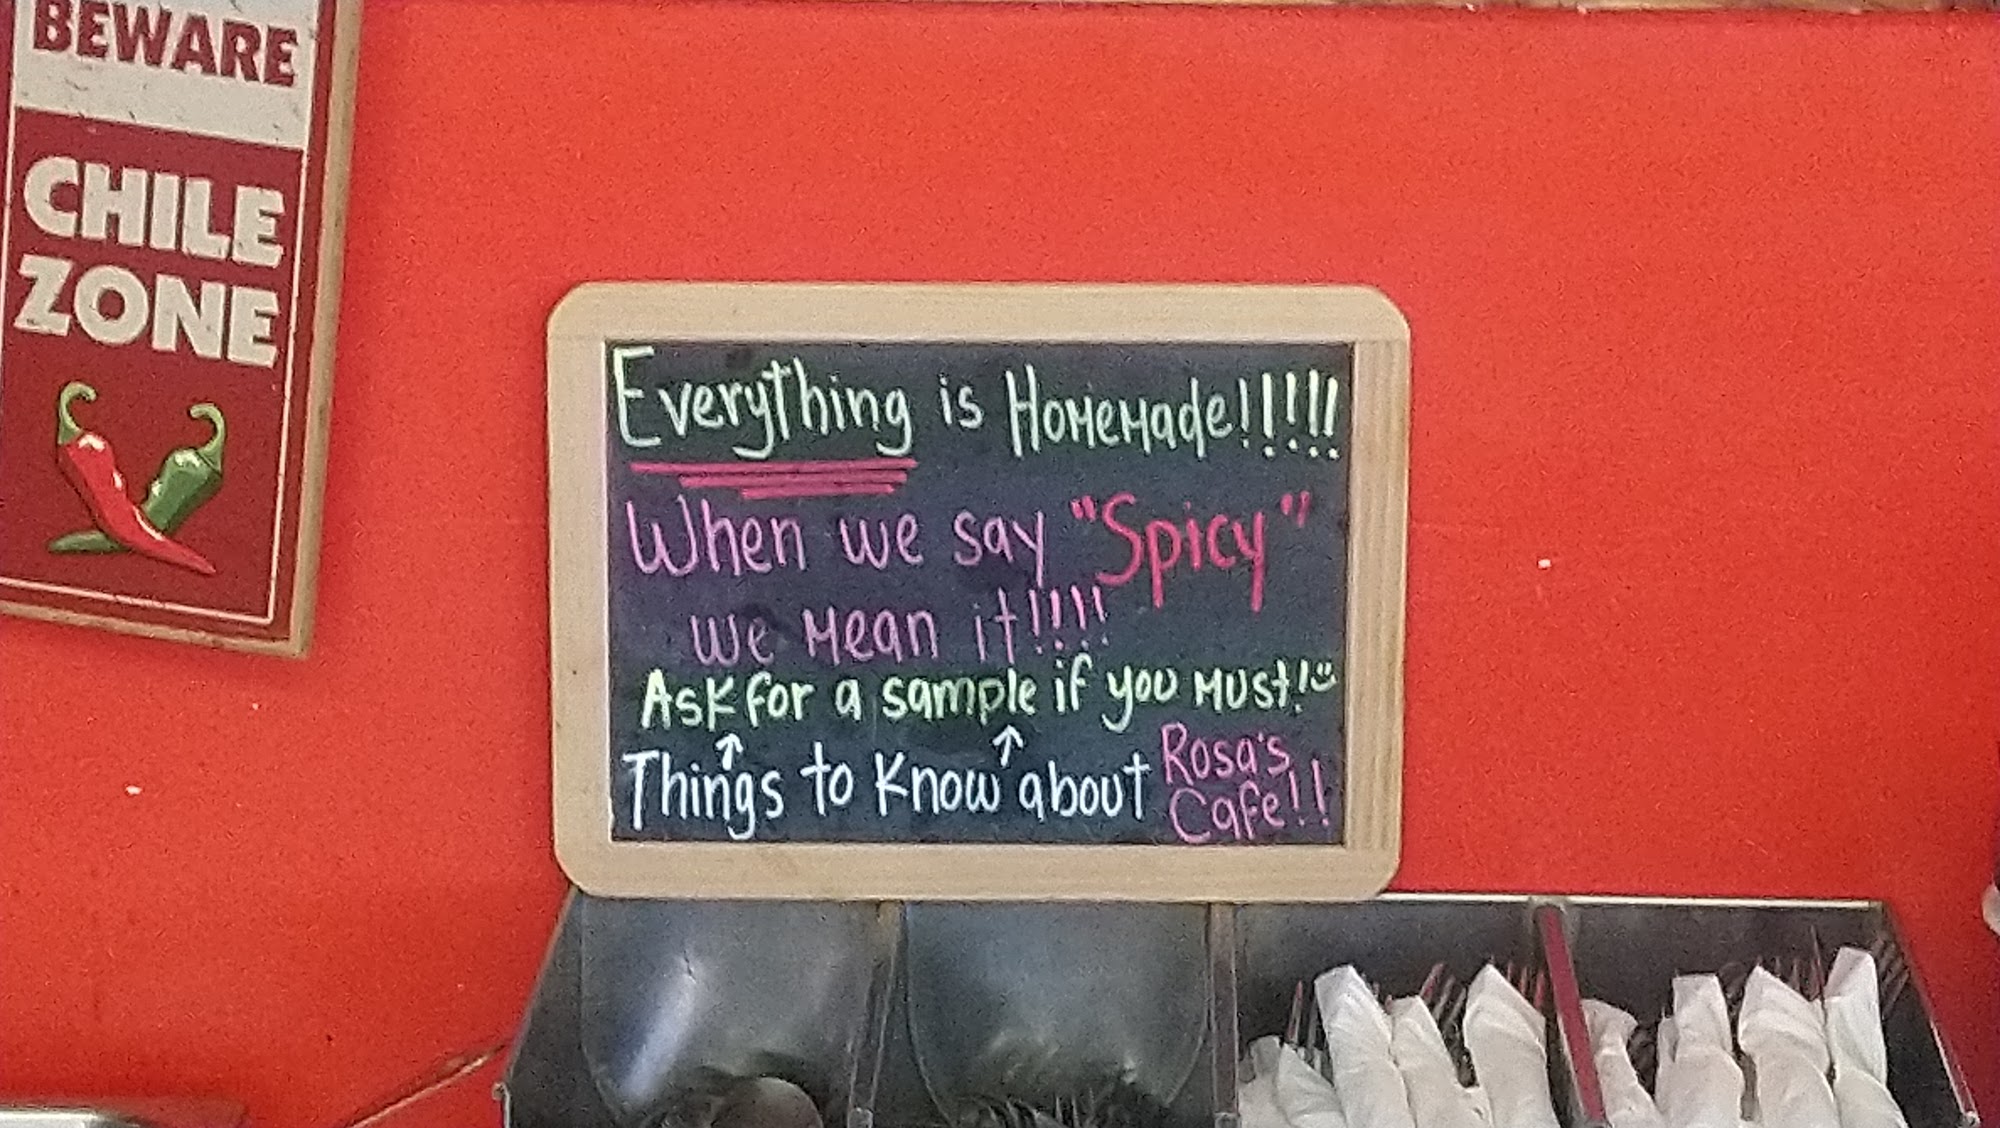 BEWARE
CHILE
ZONE
Everything is Homemade!!!!!
When we say "Spicy"
we mean it!!!!
Ask for a sample if you must!
Things to know about Rosa's
Cafe!!